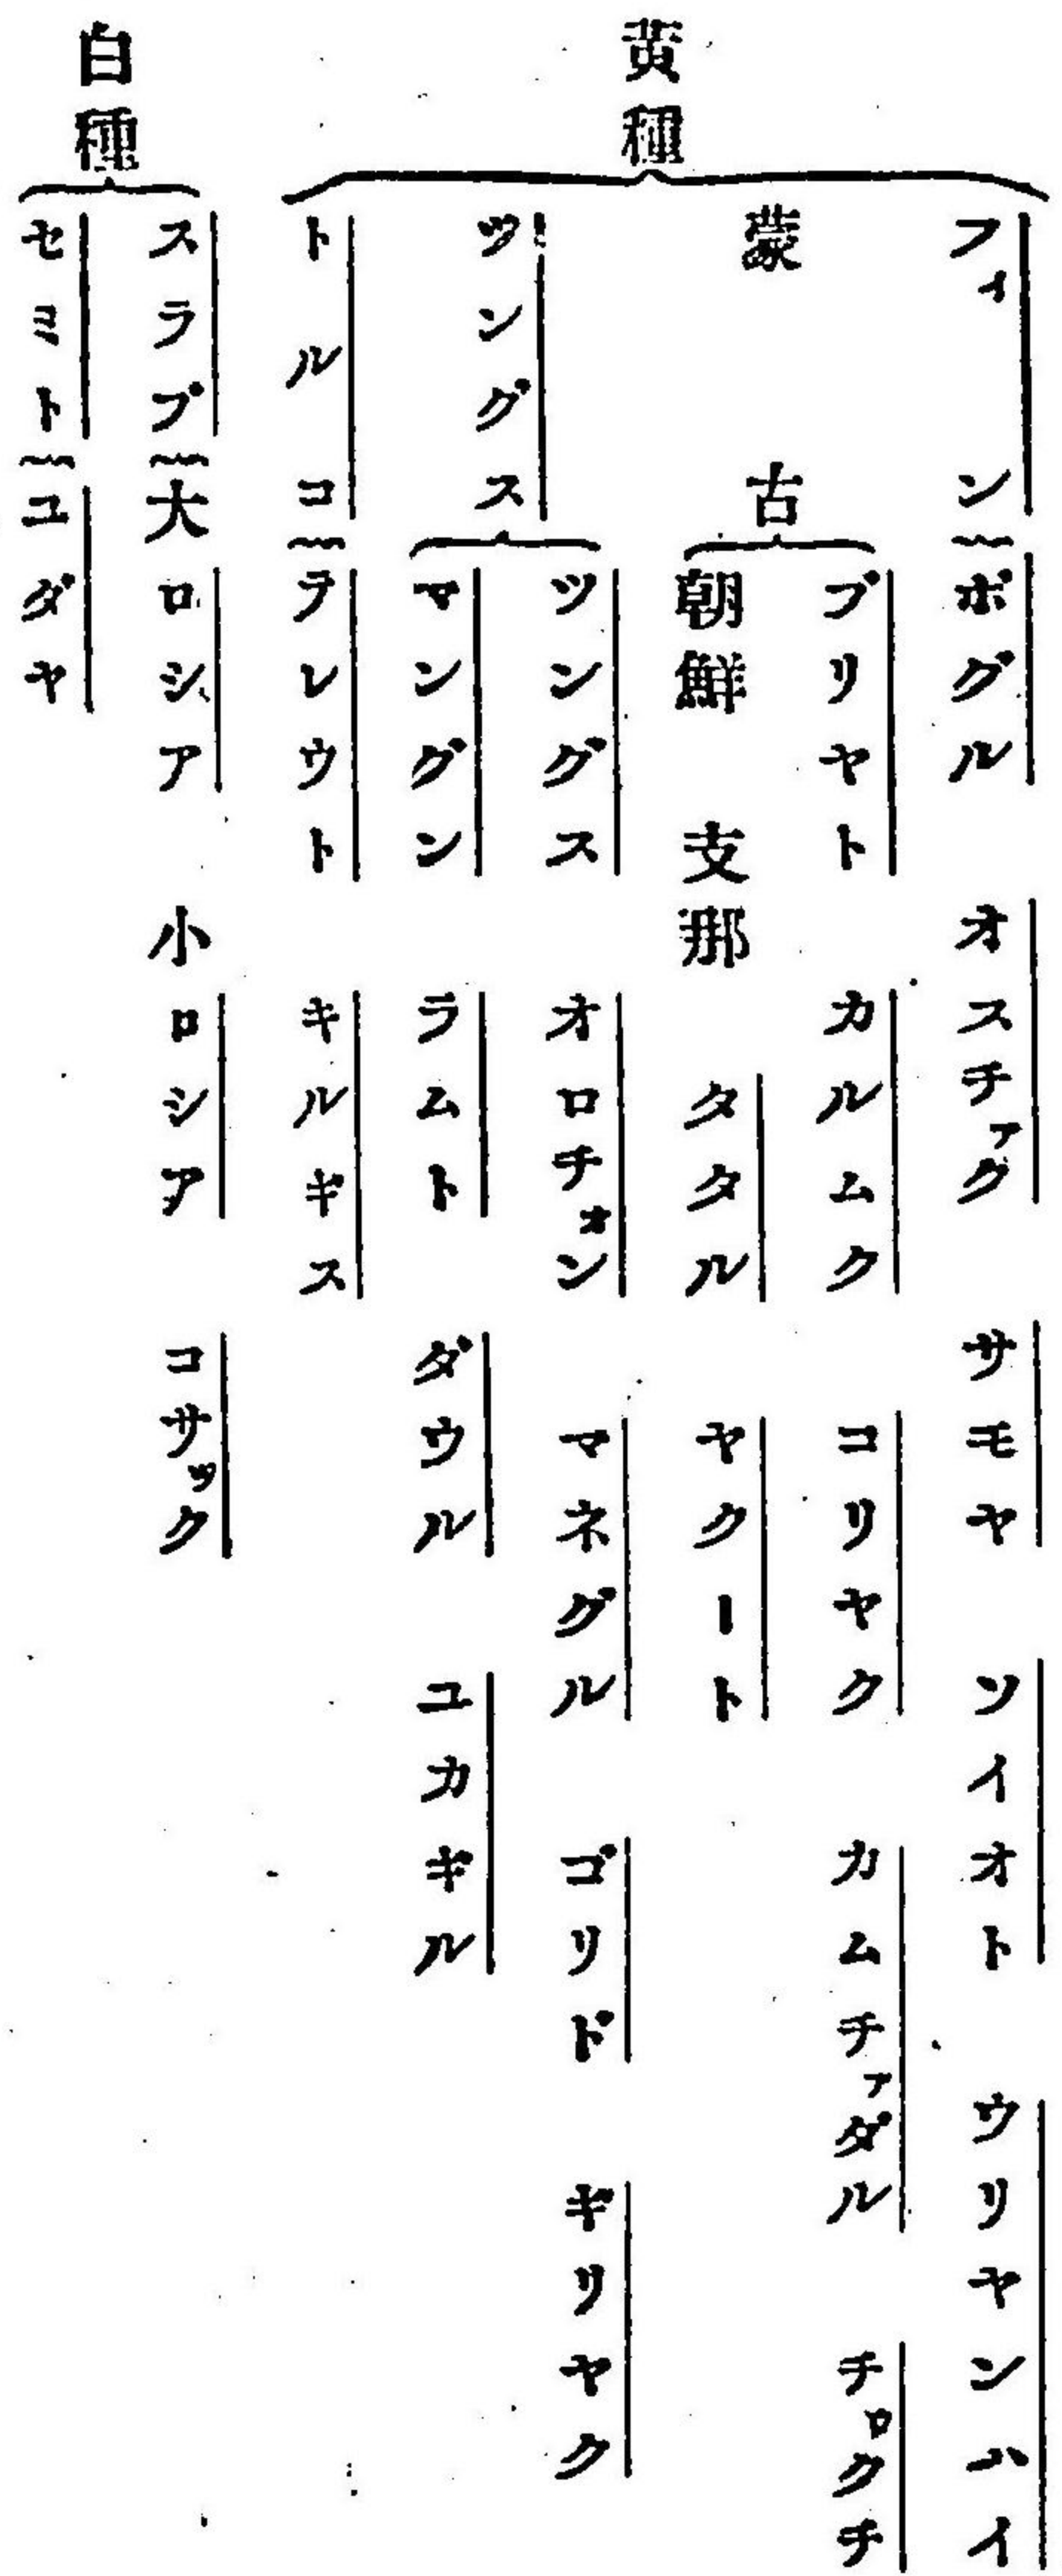 黄種
フィン
ボグル オスチァク サモヤ ソイオト ウリヤンハイ
蒙古
ブリヤト カルムク コリヤク カムチァダル チロクチ
朝鮮 支那 タタル ヤクート
ツングス
ツングス オロチォン マネグル ゴリド ギリヤク
マングン ラムト ダウル ユカギル
トルコ
テレウト キルギス
白種
スラブ
大ロシア 小ロシア コサック
セミト
ユダヤ